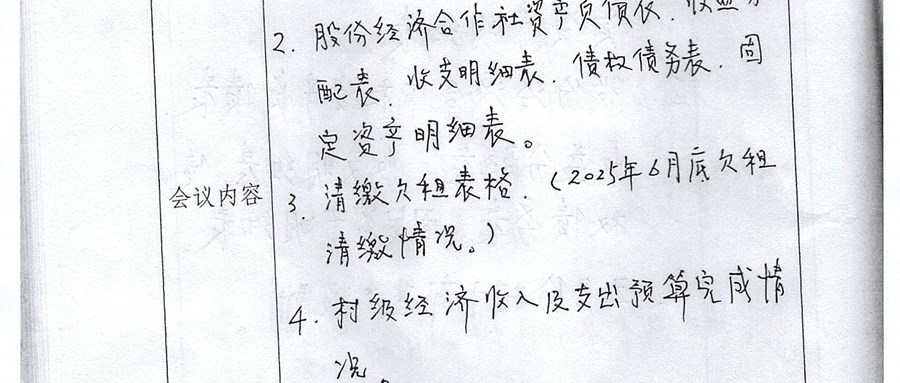 2. 股份经济合作社资产负债表、收益分
配表、收支明细表、债权债务表、固
定资产明细表。
会议内容
3. 清缴欠租表格.（2025年6月底欠租
清缴情况。）
4. 村级经济收入及支出预算完成情
况。